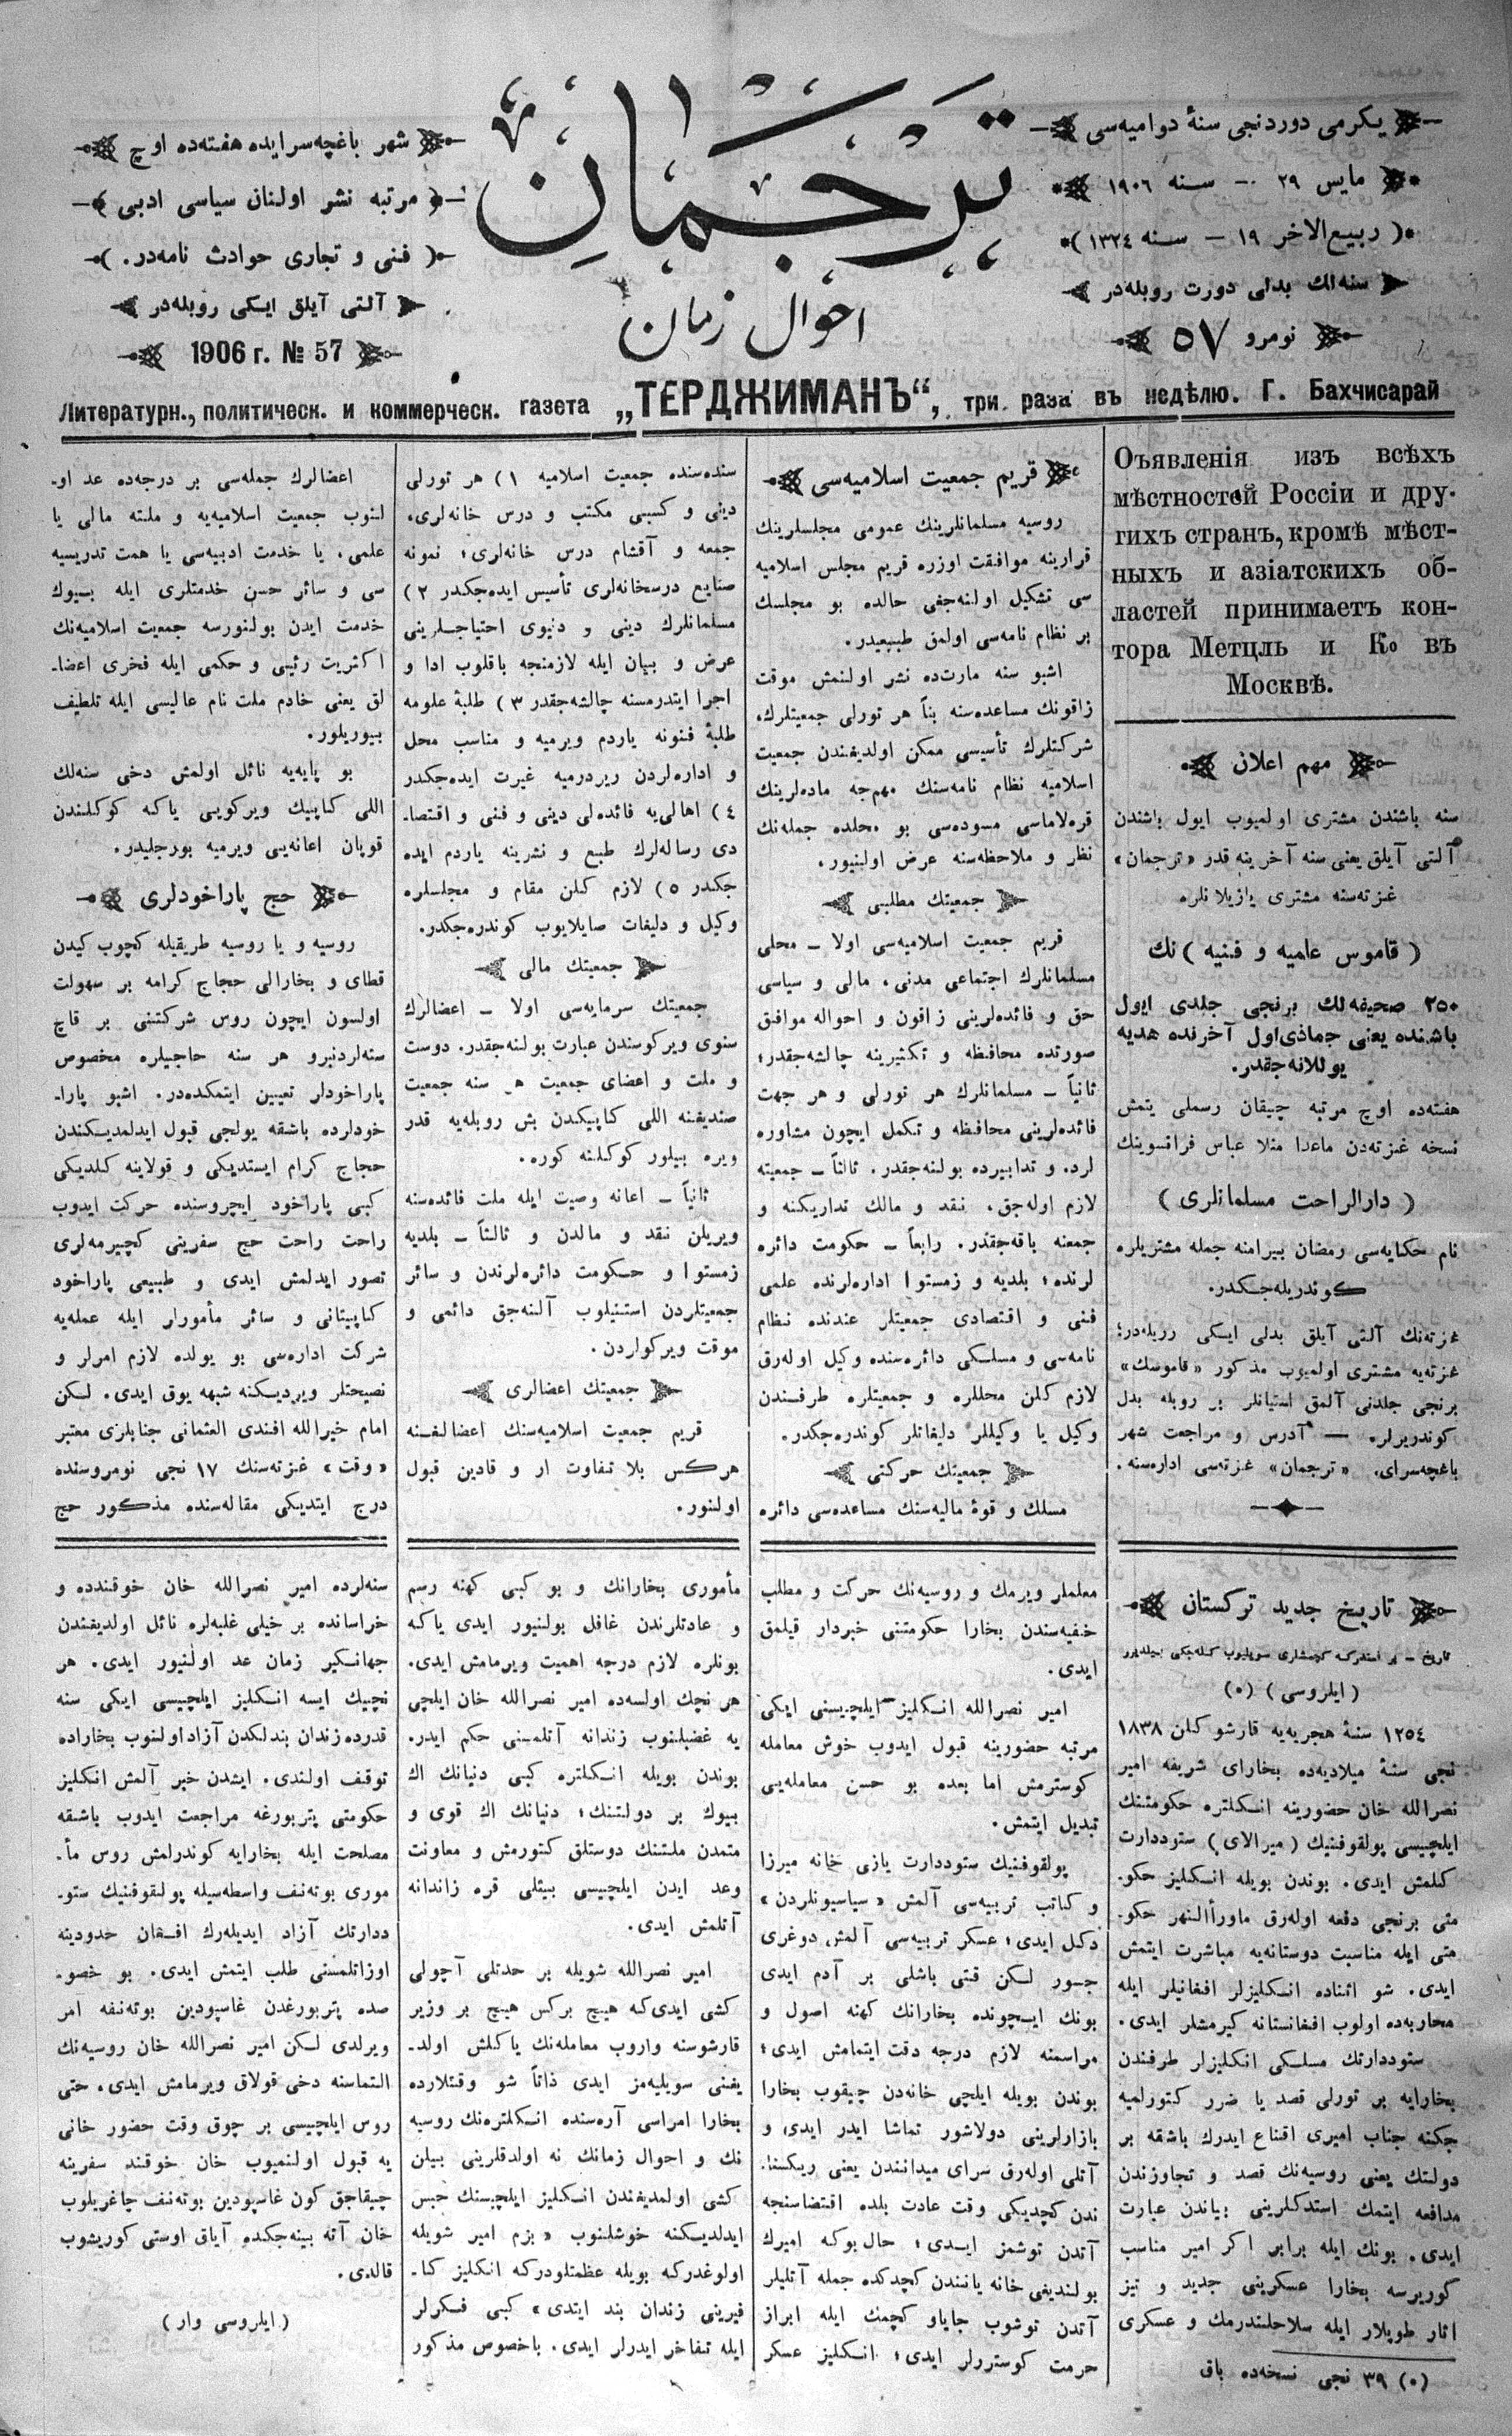 يكرمى دوردنجى سنۀ دواميه‌سى
مايس ٢٩ — سنه ١٩٠٦
( ربيع‌الاخر ١٩ — سنه ١٣٢٤ )
سنه‌لك بدلى دورت روبله‌در
نومرو ٥٧
ترجمان
احوال زمان
شهر باغچه‌سرايده هفته‌ده اوچ
مرتبه نشر اولنان سياسى ادبى
( فنى و تجارى حوادث نامه‌در. )
آلتى آيلق ايكى روبله‌در
1906 г. № 57
Литературн., политическ. и коммерческ. газета „ТЕРДЖИМАНЪ“, три раза въ недѣлю. Г. Бахчисарай
Объявленія изъ всѣхъ
мѣстностей Россіи и дру-
гихъ странъ, кромѣ мѣст-
ныхъ и азіатскихъ об-
ластей принимаетъ кон-
тора Метцль и Ко въ
Москвѣ.
مهم اعلان
سنه باشندن مشترى اولميوب ايول باشندن
آلتى آيلق يعنى سنه آخرينه قدر «ترجمان»
غزته‌سنه مشترى يازيلانلره
( قاموس علميه و فنيه ) نك
٢٥٠ صحيفه‌لك برنجى جلدى ايول
باشنده يعنى جماذى‌اول آخرنده هديه
يوللانه‌جقدر.
هفته‌ده اوچ مرتبه چيقان رسملى يتمش
نسخه غزته‌دن ماعدا منلا عباس فرانسوينك
( دارالراحت مسلمانلرى )
نام حكايه‌سى رمضان بيرامنه جمله مشتريلره
كوندريله‌جكدر.
غزته‌نك آلتى آيلق بدلى ايكى روبله‌در؛
غزته‌يه مشترى اولميوب مذكور «قاموسك»
برنجى جلدنى آلمق استيانلر بر روبله بدل
كوندريرلر. — آدرس و مراجعت شهر
باغچه‌سراى، «ترجمان» غزته‌سى اداره‌سنه.
قريم جمعيت اسلاميه‌سى
روسيه مسلمانلرينك عمومى مجلسلرينك
قرارينه موافقت اوزره قريم مجلس اسلاميه
سى تشكيل اولنه‌جغى حالده بو مجلسك
بر نظام نامه‌سى اولمق طبيعيدر.
اشبو سنه مارت‌ده نشر اولنمش موقت
زاقونك مساعده‌سنه بناً هر تورلى جمعيتلرك،
شركتلرك تأسيسى ممكن اولديغندن جمعيت
اسلاميه نظام نامه‌سنك مهمجه ماده‌لرينك
قره‌لاماسى مسوده‌سى بو محلده جمله‌نك
نظر و ملاحظه‌سنه عرض اولنيور.
جمعيتك مطلبى
قريم جمعيت اسلاميه‌سى اولا — محلى
مسلمانلرك اجتماعى مدنى، مالى و سياسى
حق و فائده‌لرينى زاقون و احواله موافق
صورتده محافظه و تكثيرينه چالشه‌جقدر؛
ثانياً — مسلمانلرك هر تورلى و هر جهت
فائده‌لرينى محافظه و تكمل ايچون مشاوره
لرده و تدابيرده بولنه‌جقدر. ثالثاً — جمعيته
لازم اوله‌جق، نقد و مالك تداريكنه و
جمعنه باقه‌جقدر. رابعاً — حكومت دائره
لرنده؛ بلديه و زمستوا اداره‌لرنده علمى
فنى و اقتصادى جمعيتلر عندنده نظام
نامه‌سى و مسلكى دائره‌سنده وكيل اوله‌رق
لازم كلن محللره و جمعيتلره طرفندن
وكيل يا وكيللر دليغاتلر كوندره‌جكدر.
جمعيتك حركتى
مسلك و قوۀ ماليه‌سنك مساعده‌سى دائره
سنده‌سنده جمعيت اسلاميه ١) هر تورلى
دينى و كسبى مكتب و درس خانه‌لرى،
جمعه و آقشام درس خانه‌لرى؛ نمونه
صنايع درسخانه‌لرى تأسيس ايده‌جكدر ٢)
مسلمانلرك دينى و دنيوى احتياجلرينى
عرض و بيان ايله لازمنجه باقلوب ادا و
اجرا ايتدرمسنه چالشه‌جقدر ٣) طلبۀ علومه
طلبۀ فنونه ياردم ويرميه و مناسب محل
و اداره‌لردن ويردرميه غيرت ايده‌جكدر
٤) اهالى‌يه فائده‌لى دينى و فنى و اقتصا-
دى رساله‌لرك طبع و نشرينه ياردم ايده
جكدر ٥) لازم كلن مقام و مجلسلره
وكيل و دليغات صايلايوب كوندره‌جكدر.
جمعيتك مالى
جمعيتك سرمايه‌سى اولا — اعضالرك
سنوى ويركوسندن عبارت بولنه‌جقدر. دوست
و ملت و اعضاى جمعيت هر سنه جمعيت
صنديغنه اللى كاپيكدن بش روبله‌يه قدر
ويره بيلور كوكلنه كوره.
ثانياً — اعانه وصيت ايله ملت فائده‌سنه
ويريلن نقد و مالدن و ثالثاً — بلديه
زمستوا و حكومت دائره‌لرندن و سائر
جمعيتلردن استنيلوب آلنه‌جق دائمى و
موقت ويركولردن.
جمعيتك اعضالرى
قريم جمعيت اسلاميه‌سنك اعضالغنه
هركس بلا تفاوت ار و قادين قبول
اولنور.
اعضالرك جمله‌سى بر درجه‌ده عد او-
لنوب جمعيت اسلاميه‌يه و ملته مالى يا
علمى، يا خدمت ادبيه‌سى يا همت تدريسيه
سى و سائر حسن خدمتلرى ايله بيوك
خدمت ايدن بولنورسه جمعيت اسلاميه‌نك
اكثريت رئيى و حكمى ايله فخرى اعضا-
لق يعنى خادم ملت نام عاليسى ايله تلطيف
بيوريلور.
بو پايه‌يه نائل اولمش دخى سنه‌لك
اللى كاپيك ويركويى ياكه كوكلندن
قوپان اعانه‌يى ويرميه بورجليدر.
حج پاراخودلرى
روسيه و يا روسيه طريقيله كچوب كيدن
قطاى و بخارالى حجاج كرامه بر سهولت
اولسون ايچون روس شركتنى بر قاچ
سنه‌لردنبرو هر سنه حاجيلره مخصوص
پاراخودلر تعيين ايتمكده‌در. اشبو پارا-
خودلرده باشقه يولجى قبول ايدلمديكندن
حجاج كرام ايستديكى و قولاينه كلديكى
كبى پاراخود ايچروسنده حركت ايدوب
راحت راحت حج سفرينى كچيرمه‌لرى
تصور ايدلمش ايدى و طبيعى پاراخود
كاپيتانى و سائر مأمورلر ايله عمله‌يه
شركت اداره‌سى بو يولده لازم امرلر و
نصيحتلر ويرديكنه شبهه يوق ايدى. لكن
امام خيرالله افندى العثمانى جنابلرى معتبر
«وقت» غزته‌سنك ١٧ نجى نومروسنده
درج ايتديكى مقاله‌سنده مذكور حج
تاريخ جديد تركستان
( ايلروسى ) (٠)
١٢٥٤ سنۀ هجريه‌يه قارشو كلن ١٨٣٨
نجى سنۀ ميلاديه‌ده بخاراى شريفه امير
نصرالله خان حضورينه انكلتره حكومتنك
ايلچيسى پولقوفنيك ( ميرالاى ) ستوددارت
كلمش ايدى. بوندن بويله انكليز حكو-
متى برنجى دفعه اوله‌رق ماورأالنهر حكو-
متى ايله مناسبت دوستانه‌يه مباشرت ايتمش
ايدى. شو اثناده انكليزلر افغانيلر ايله
محاربه‌ده اولوب افغانستانه كيرمشلر ايدى.
ستوددارتك مسلكى انكليزلر طرفندن
بخارايه بر تورلى قصد يا ضرر كتورلميه
جكنه جناب اميرى اقناع ايدرك باشقه بر
دولتك يعنى روسيه‌نك قصد و تجاوزندن
مدافعه ايتمك استدكلرينى بياندن عبارت
ايدى. بونك ايله برابر اكر امير مناسب
كوريرسه بخارا عسكرينى جديد و تيز
اتار طوپلار ايله سلاحلندرمك و عسكرى
(٠) ٣٩ نجى نسخه‌ده باق
معلملر ويرمك و روسيه‌نك حركت و مطلب
خفيه‌سندن بخارا حكومتنى خبردار قيلمق
ايدى.
امير نصرالله انكليز ايلچيسنى ايكى
مرتبه حضورينه قبول ايدوب خوش معامله
كوسترمش اما بعده بو حسن معامله‌يى
تبديل ايتمش.
پولقوفنيك ستوددارت يازى خانه ميرزا
و كتاب تربيه‌سى آلمش «سياسيونلردن»
دكل ايدى؛ عسكر تربيه‌سى آلمش دوغرى
جسور لكن قتى باشلى بر آدم ايدى
بونك ايچونده بخارانك كهنه اصول و
مراسمنه لازم درجه دقت ايتمامش ايدى؛
بوندن بويله ايلچى خانه‌دن چيقوب بخارا
بازارلرينى دولاشور تماشا ايدر ايدى و
آتلى اوله‌رق سراى ميداندن يعنى ريكستا-
ندن كچديكى وقت عادت بلده اقتضاسنجه
آتدن توشمز ايدى؛ حال بوكه اميرك
بولنديغى خانه يانندن كچدكده جمله آتليلر
آتدن توشوب جاياو كچمك ايله ابراز
حرمت كوستررلر ايدى؛ انكليز عسكر
مأمورى بخارانك و بو كبى كهنه رسم
و عادتلرندن غافل بولنيور ايدى ياكه
بونلره لازم درجه اهميت ويرمامش ايدى.
هر نچك اولسه‌ده امير نصرالله خان ايلچى
يه غضبلنوب زندانه آتلمسنى حكم ايدر.
بوندن بويله انكلتره كبى دنيانك اك
بيوك بر دولتنك؛ دنيانك اك قوى و
متمدن ملتنك دوستلق كتورمش و معاونت
وعد ايدن ايلچيسى بيتلى قره زاندانه
آتلمش ايدى.
امير نصرالله شويله بر حدتلى آچولى
كشى ايدى‌كه هيچ بركس هيچ بر وزير
قارشوسنه واروب معامله‌نك ياكلش اولد-
يغنى سويليه‌مز ايدى ذاتاً شو وقتلارده
بخارا امراسى آره‌سنده انكلتره‌نك روسيه
نك و احوال زمانك نه اولدقلرينى بيلن
كشى اولمديغندن انكليز ايلچيسنك حبس
ايدلديكنه خوشلنوب «بزم امير شويله
اولوغدركه بويله عظمتلودركه انكليز كا-
فيرينى زندان بند ايتدى» كبى فكرلر
ايله تفاخر ايدرلر ايدى. باخصوص مذكور
سنه‌لرده امير نصرالله خان خوقندده و
خراسانده بر خيلى غلبه‌لره نائل اولديغندن
جهانكير زمان عد اولنيور ايدى. هر
نچيك ايسه انكليز ايلچيسى ايكى سنه
قدرده زندان بندلكدن آزاد اولنوب بخاراده
توقف اولندى. ايشدن خبر آلمش انكليز
حكومتى پتربورغه مراجعت ايدوب باشقه
مصلحت ايله بخارايه كوندرلمش روس مأ-
مورى بوته‌نف واسطه‌سيله پولقوفنيك ستو-
ددارتك آزاد ايديله‌رك افغان حدودينه
اوزاتلمسنى طلب ايتمش ايدى. بو خصو-
صده پتربورغدن غاسپودين بوته‌نفه امر
ويرلدى لكن امير نصرالله خان روسيه‌نك
التماسنه دخى قولاق ويرمامش ايدى. حتى
روس ايلچيسى بر چوق وقت حضور خانى
يه قبول اولنميوب خان خوقند سفرينه
چيقاجق كون غاسپودين بوته‌نف چاغريلوب
خان آته بينه‌جكده آياق اوستى كوريشوب
قالدى.
( ايلروسى وار )